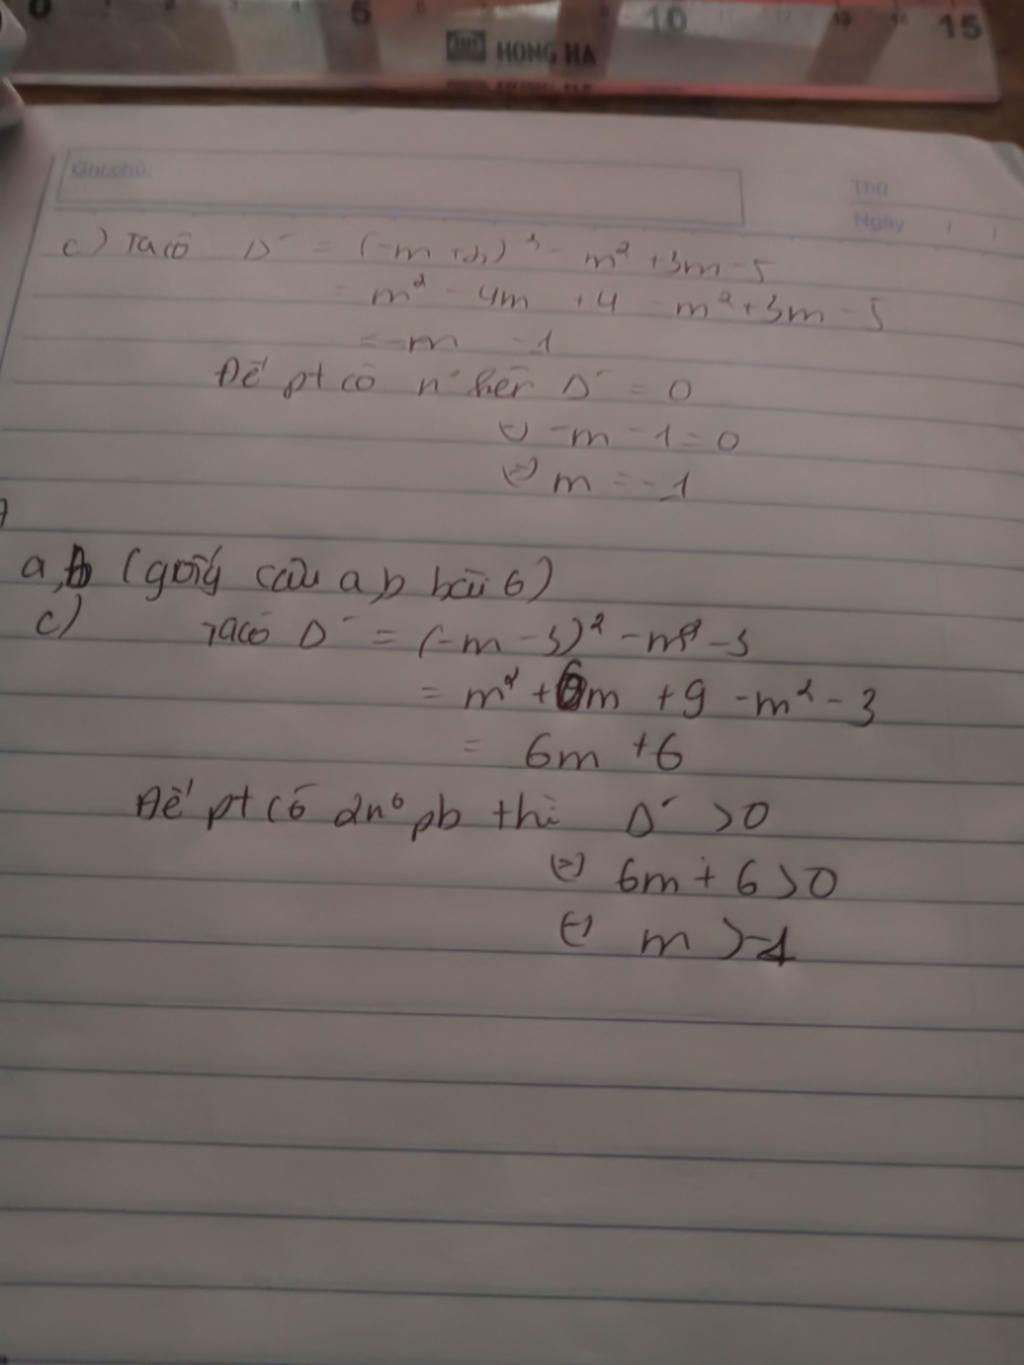 0 5 10 15
HONG HA
Ghi chú:
Thứ
Ngày
c) Ta có Δ' = (-m +2)² - m² +3m - 5
= m² - 4m + 4 - m² + 3m - 5
= -m - 1
Để pt có n° kép Δ' = 0
⇔ -m - 1 = 0
⇔ m = -1
a, b (giống câu a, b bài 6)
c) Ta có Δ' = (-m - 3)² - m² - 3
= m² + 6m + 9 - m² - 3
= 6m + 6
Để pt có 2n° pb thì Δ' > 0
⇔ 6m + 6 > 0
⇔ m > -1